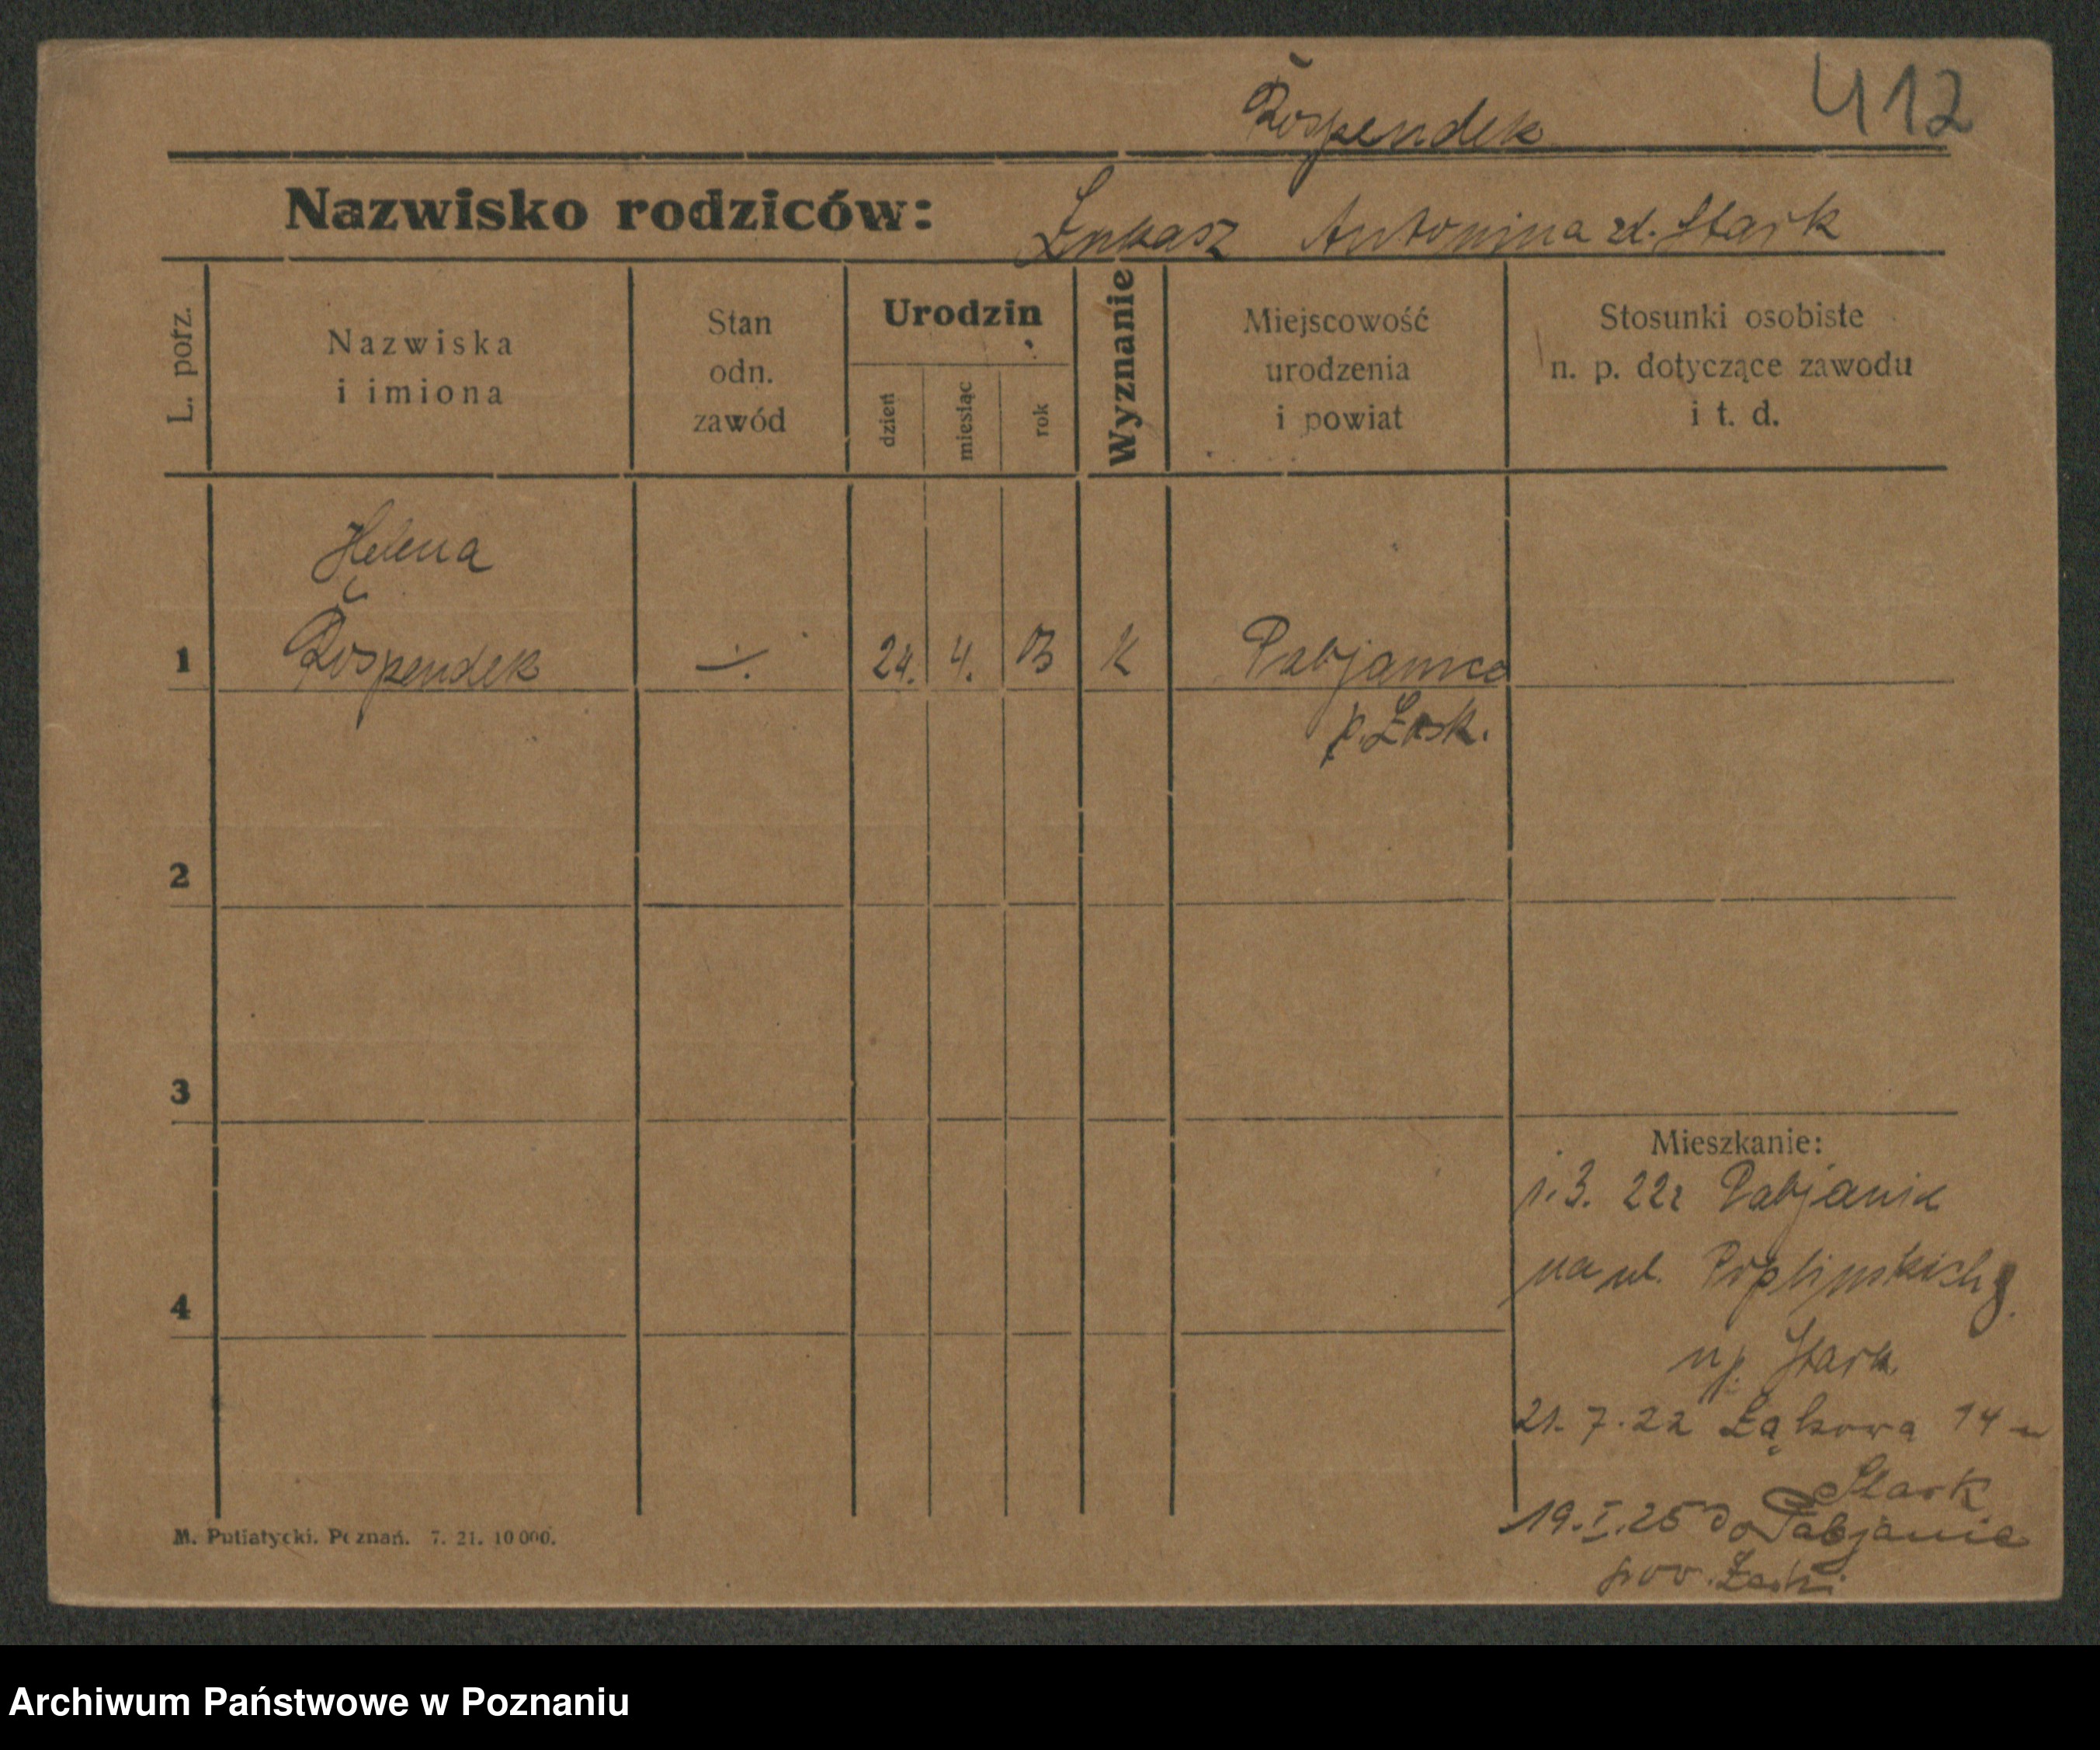 412
Rospendek
Nazwisko rodziców: Łukasz Antonina zd. Stark
L. porz.
Nazwiska
i imiona
Stan
odn.
zawód
Urodzin
dzień
miesiąc
rok
Wyznanie
Miejscowość
urodzenia
i powiat
Stosunki osobiste
n. p. dotyczące zawodu
i t. d.
Helena
1 Rospendek 24. 4. 03 K Pabjanice
p. Łask.
2
3
4
Mieszkanie:
1.3. 22 z Pabjanic
na ul. 8.
np. Stark.
21. 7. 22 Łąkowa 14 u
Stark
19. I. 25 do Pabjanic
pow. Łaski
M. Putiatycki. Poznań. 7. 21. 10 000.
Archiwum Państwowe w Poznaniu